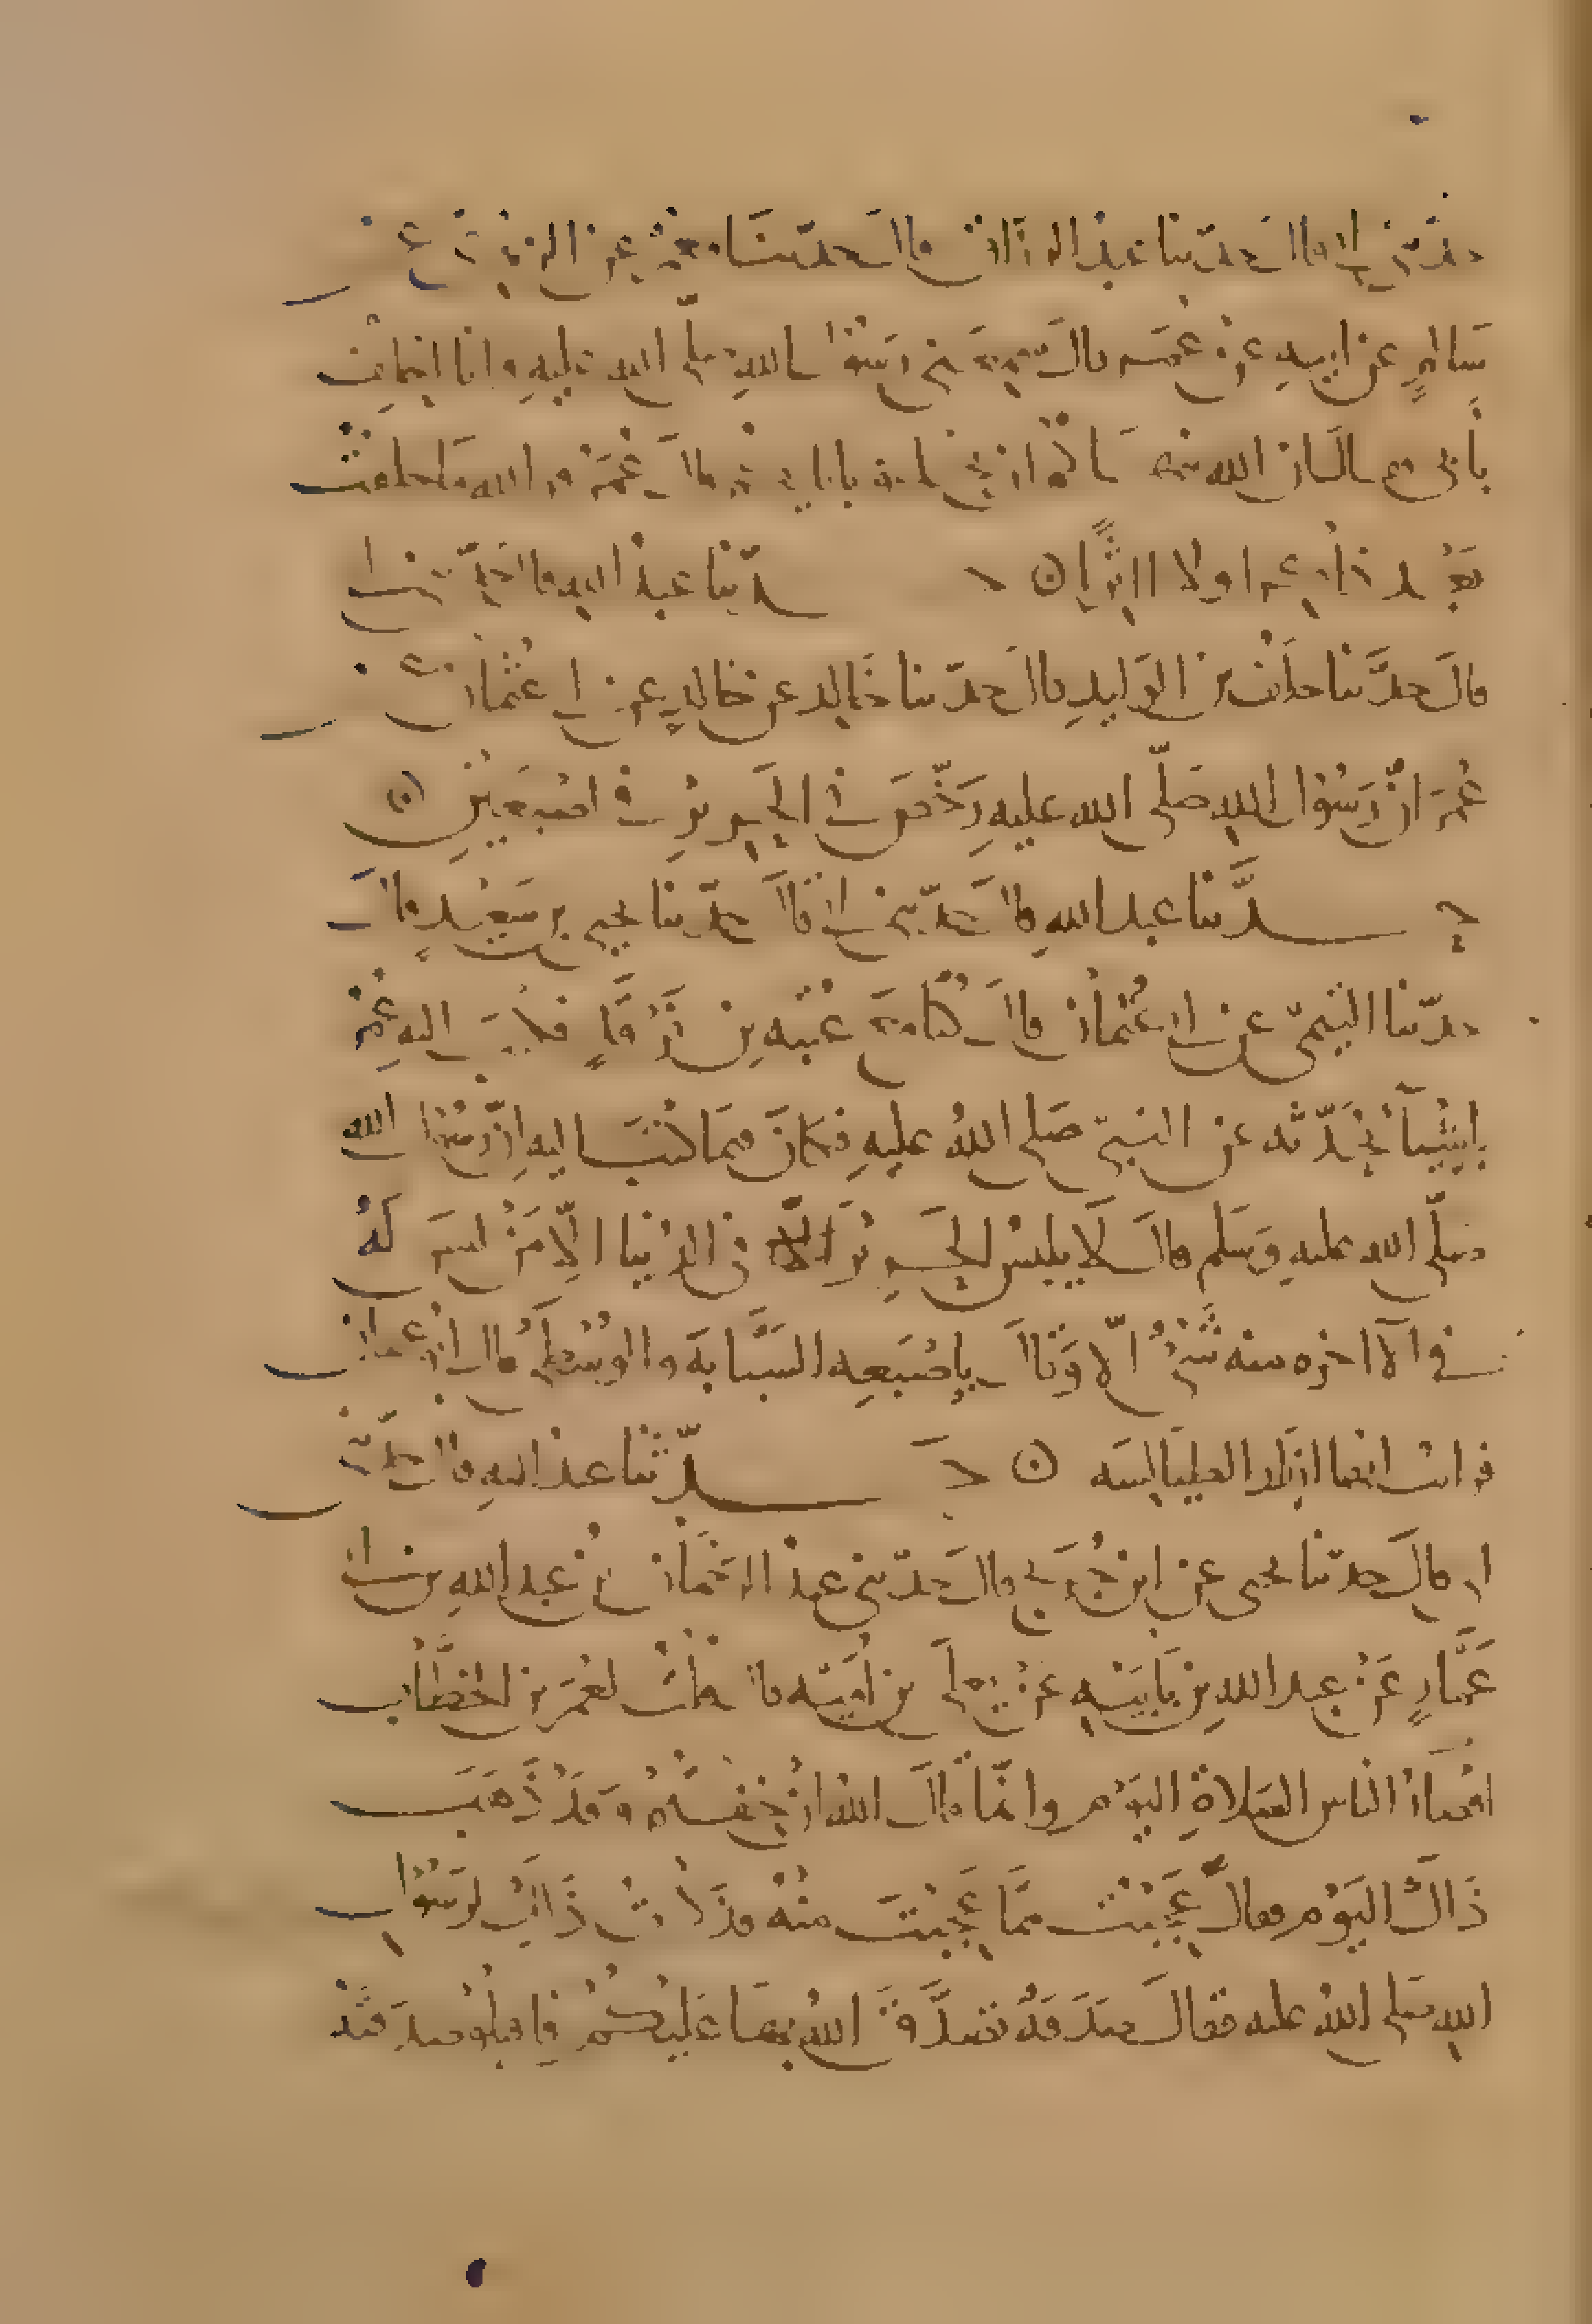 حدثني ابي قال حدثنا عبد الرزاق قال حدثنا معمر عن الزهري عن
سالمٍ عن ابيهِ عن عُمَر قال سمعني رسول اللهِ صلّى الله عليهِ وانا احلف
بأبي فقال ان الله ينهاكم ان تحلفوا بابايكم قال عُمَرُ فوالله ما حلفتُ
بَعْد ذاكراً ولا اثِراً ن حـ
ـدّثنا عبد الله قال حدّثني ابي
قالَ حدَّثنا خلَفُ بن الوَليدِ قالَ حدّثنا خَالِد عن خالدٍ عن ابي عُثمان عن
عُمَرَ انَّ رَسُوْل اللهِ صَلّى الله عليه رَخّصَ في الحَرِيْرِ في اصْبَعَيْنِ ن
حـ ـدَّثنا عبد اللهِ قال حَدّثني ابي قالَ حدّثنا يحيى بن سَعِيْدٍ قالَ
حدّثنا التيميّ عن ابي عُثمان قالَ كُنّا مَعَ عُتْبَه بنِ فَرْقَدٍ فكتَبَ اليهِ عُمَرُ
بأِشْيآءَ يُحَدّثه عن النبيّ صَلى اللهُ عليهِ فكانَ فيمَا كتَبَ اليهِ انّ رسُوْل الله
صلّى الله عليهِ وَسَلم قالَ لَا يلبسُ الحَرِيْرَ في الدُنيَا الّا مَنْ ليسَ لَهُ
في الآخره منه شَيْءٌ الّا وَقالَ بِإصْبَعِه السَّبَّابَة والوُسْطَى قال ابو عثمان
فرايت انها ازرار الطيالسه ن حـ ـدّثنا عبد اللهِ قال حدّثني
ابي قالَ حدّثنا يحيى عن ابن جُرَيجٍ قالَ حَدّثني عبد الرحمَان بنُ عبد اللهِ بن ابي
عَمَّارٍ عَنْ عبد اللهِ بن بَابَيْهِ عَنْ يَعْلَى بن اُمَيّه قال قلتُ لعُمَرَ بن الخطَّاب
اقصَارُ الناسِ الصَلاةِ اليَوْم وانّمَا قالَ اللهُ ان خِفتُمْ وَقدْ ذَهَبَ
ذَاكَ اليَوْم فقالَ عَجِبْتُ ممَّا عَجِبْتَ منْهُ فذَكرتُ ذَاكَ لرَسُوْلِ
اللهِ صَلى اللهُ عليه فقالَ صَدَقَةٌ تصَدَّقَ اللهُ بهَا عَليْكُمْ فاقبلُوْا صدَقتَهُ